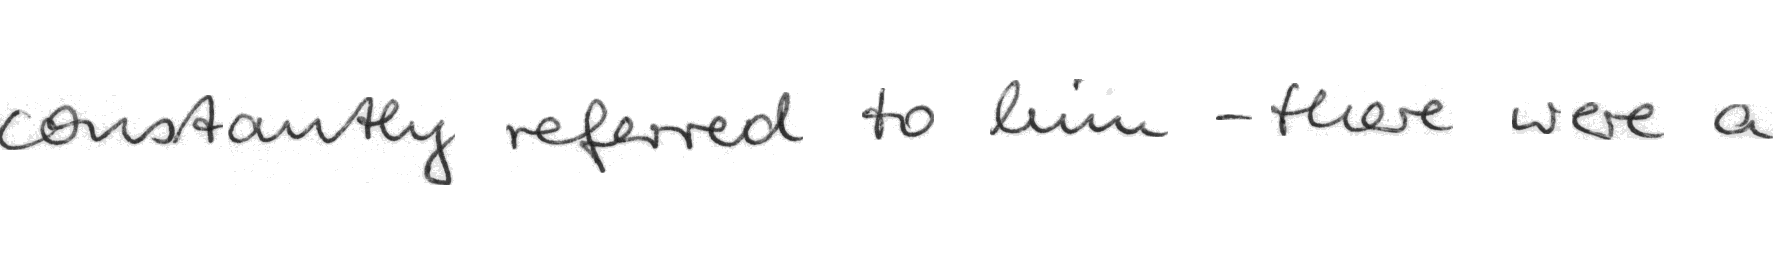 constantly referred to him - there were a